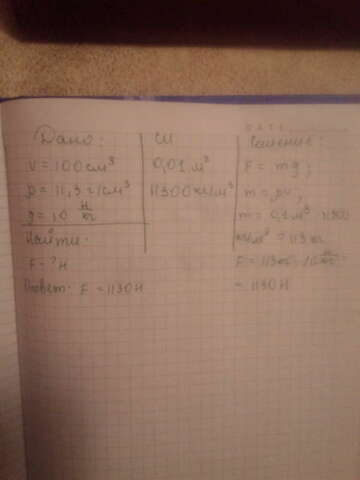 Дано:
V = 100 см³
ρ = 11,3 г/см³
g = 10 Н/кг
Найти:
F - ? Н
Ответ: F = 1130 Н
СИ
0,01 м³
11300 кг/м³
ДАТА
Решение:
F = mg;
m = ρV;
m = 0,1 м³ · 11300
кг/м³ = 113 кг
F = 113 кг · 10 Н/кг =
= 1130 Н